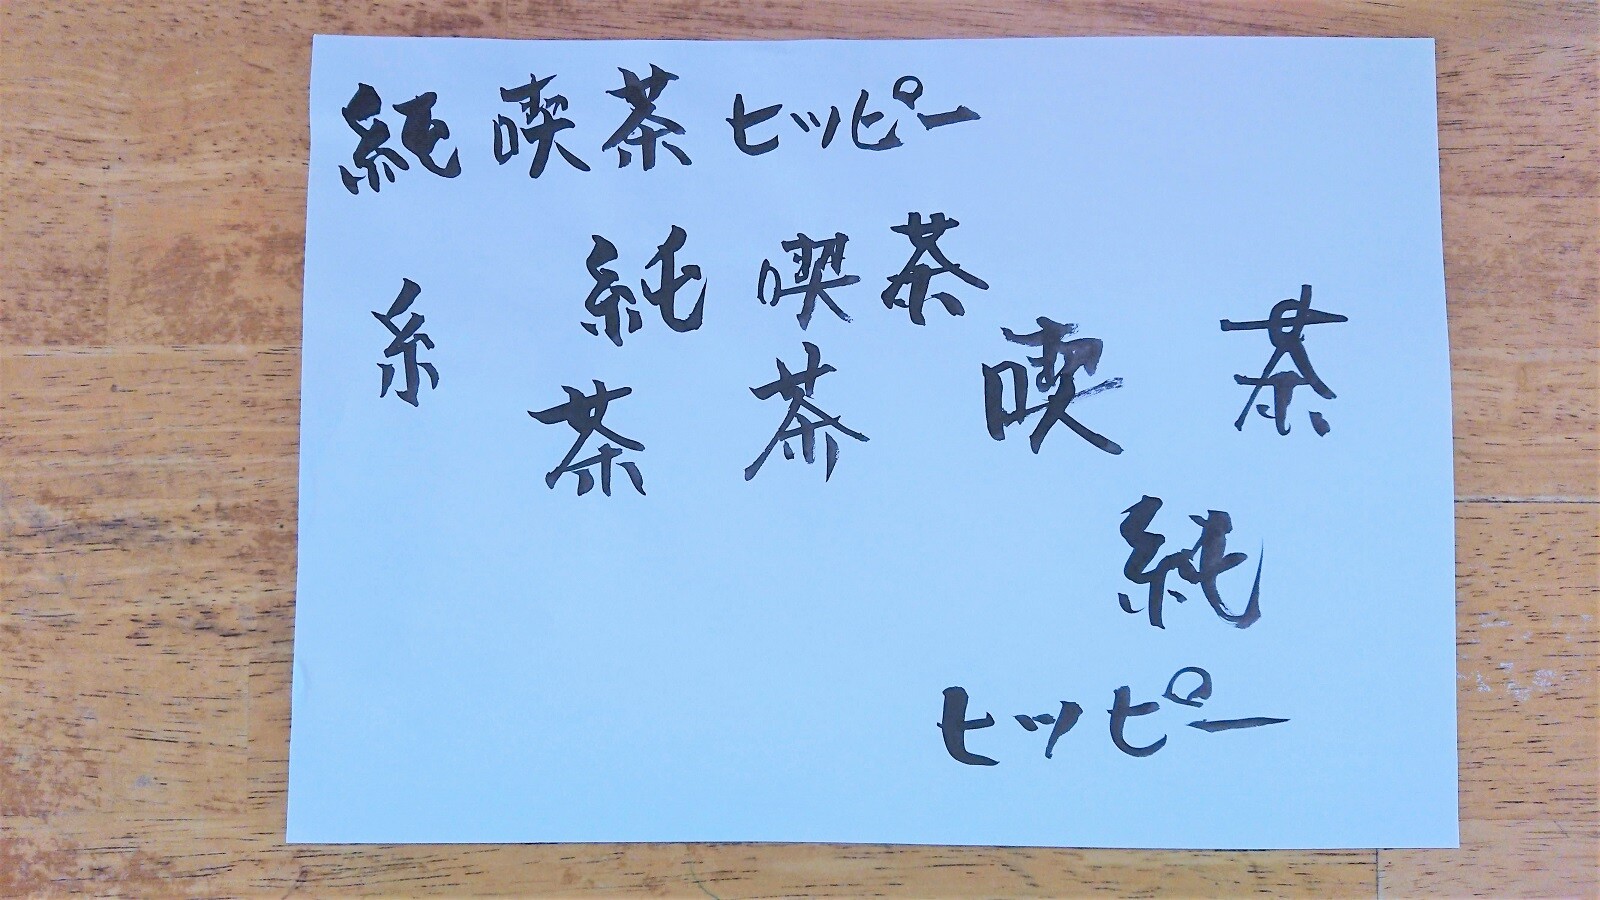 純喫茶ヒッピー
純喫茶
糸
茶
茶
喫
茶
純
ヒッピー